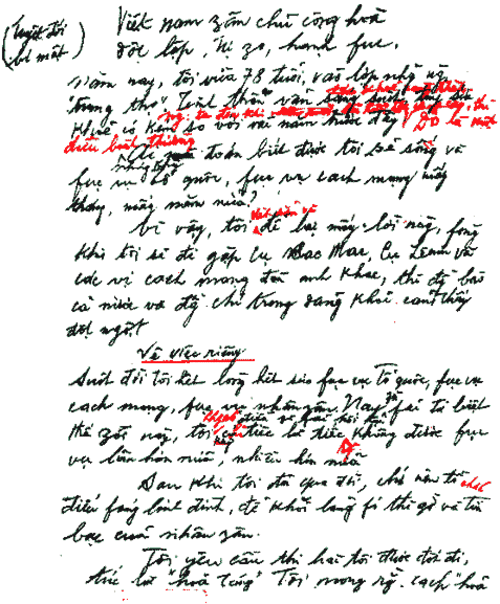 (Tuyệt đối
bí mật)
Việt nam zân chủ cộng hoà
độc lập, tự zo, hạnh fúc.
Năm nay, tôi vừa 78 tuổi, vào lớp những ng
"trung thọ". Tinh thần vẫn
khoẻ có kém so với vài năm trước đây. Đó là một
điều bình thường
toán biết được tôi sẽ sống và
fục vụ tổ quốc, fục vụ cách mạng mấy
tháng, mấy năm nữa?
Vì vậy, tôi để lại mấy lời này, fòng
khi tôi sẽ đi gặp cụ Các Mác, cụ Lênin và
các vị cách mạng đàn anh khác, thì đồng bào
cả nước và đ/chí trong đảng khỏi cảm thấy
đột ngột.
Về việc riêng:
Suốt đời tôi hết lòng hết sức fục vụ Tổ quốc, fục vụ
cách mạng, fục vụ nhân zân. Nay zù fải từ biệt
thế zới này, tôi
tiếc là tiếc không được fục
vụ lâu hơn nữa, nhiều hơn nữa
Sau khi tôi đã qua đời, chớ nên tổ chức
điếu fúng linh đình, để khỏi lãng fí thì giờ và tiền
bạc của nhân zân.
Tôi yêu cầu thi hài tôi được đốt đi,
tức là "hoả táng". Tôi mong rg. cách "hoả